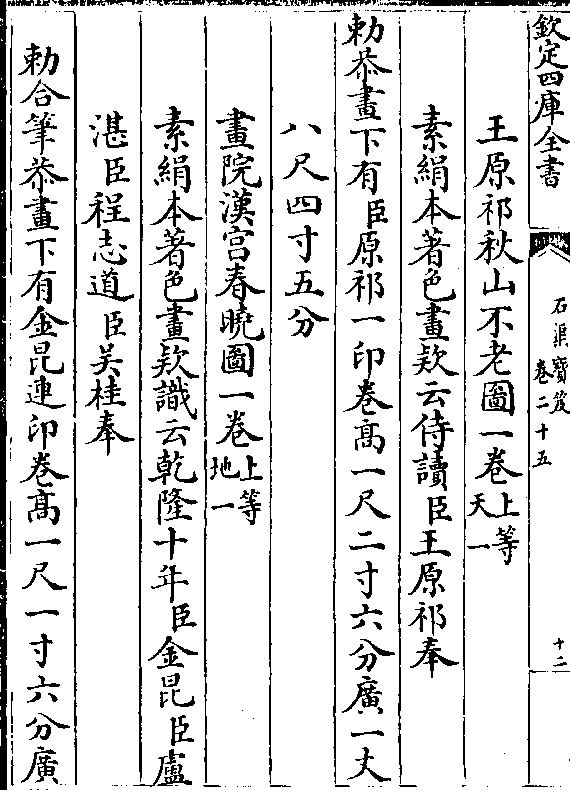 欽定四庫全書
石渠寳笈
卷二十五
十二
王原祁秋山不老圖一卷上等天一
素絹本著色畫欵云侍讀臣王原祁奉
勅恭畫下有臣原祁一印卷髙一尺二寸六分廣一丈
八尺四寸五分
畫院漢宫春曉圖一卷上等地一
素絹本著色畫欵識云乾隆十年臣金昆臣盧
湛臣程志道臣吴桂奉
勅合筆恭畫下有金昆連印卷髙一尺一寸六分廣